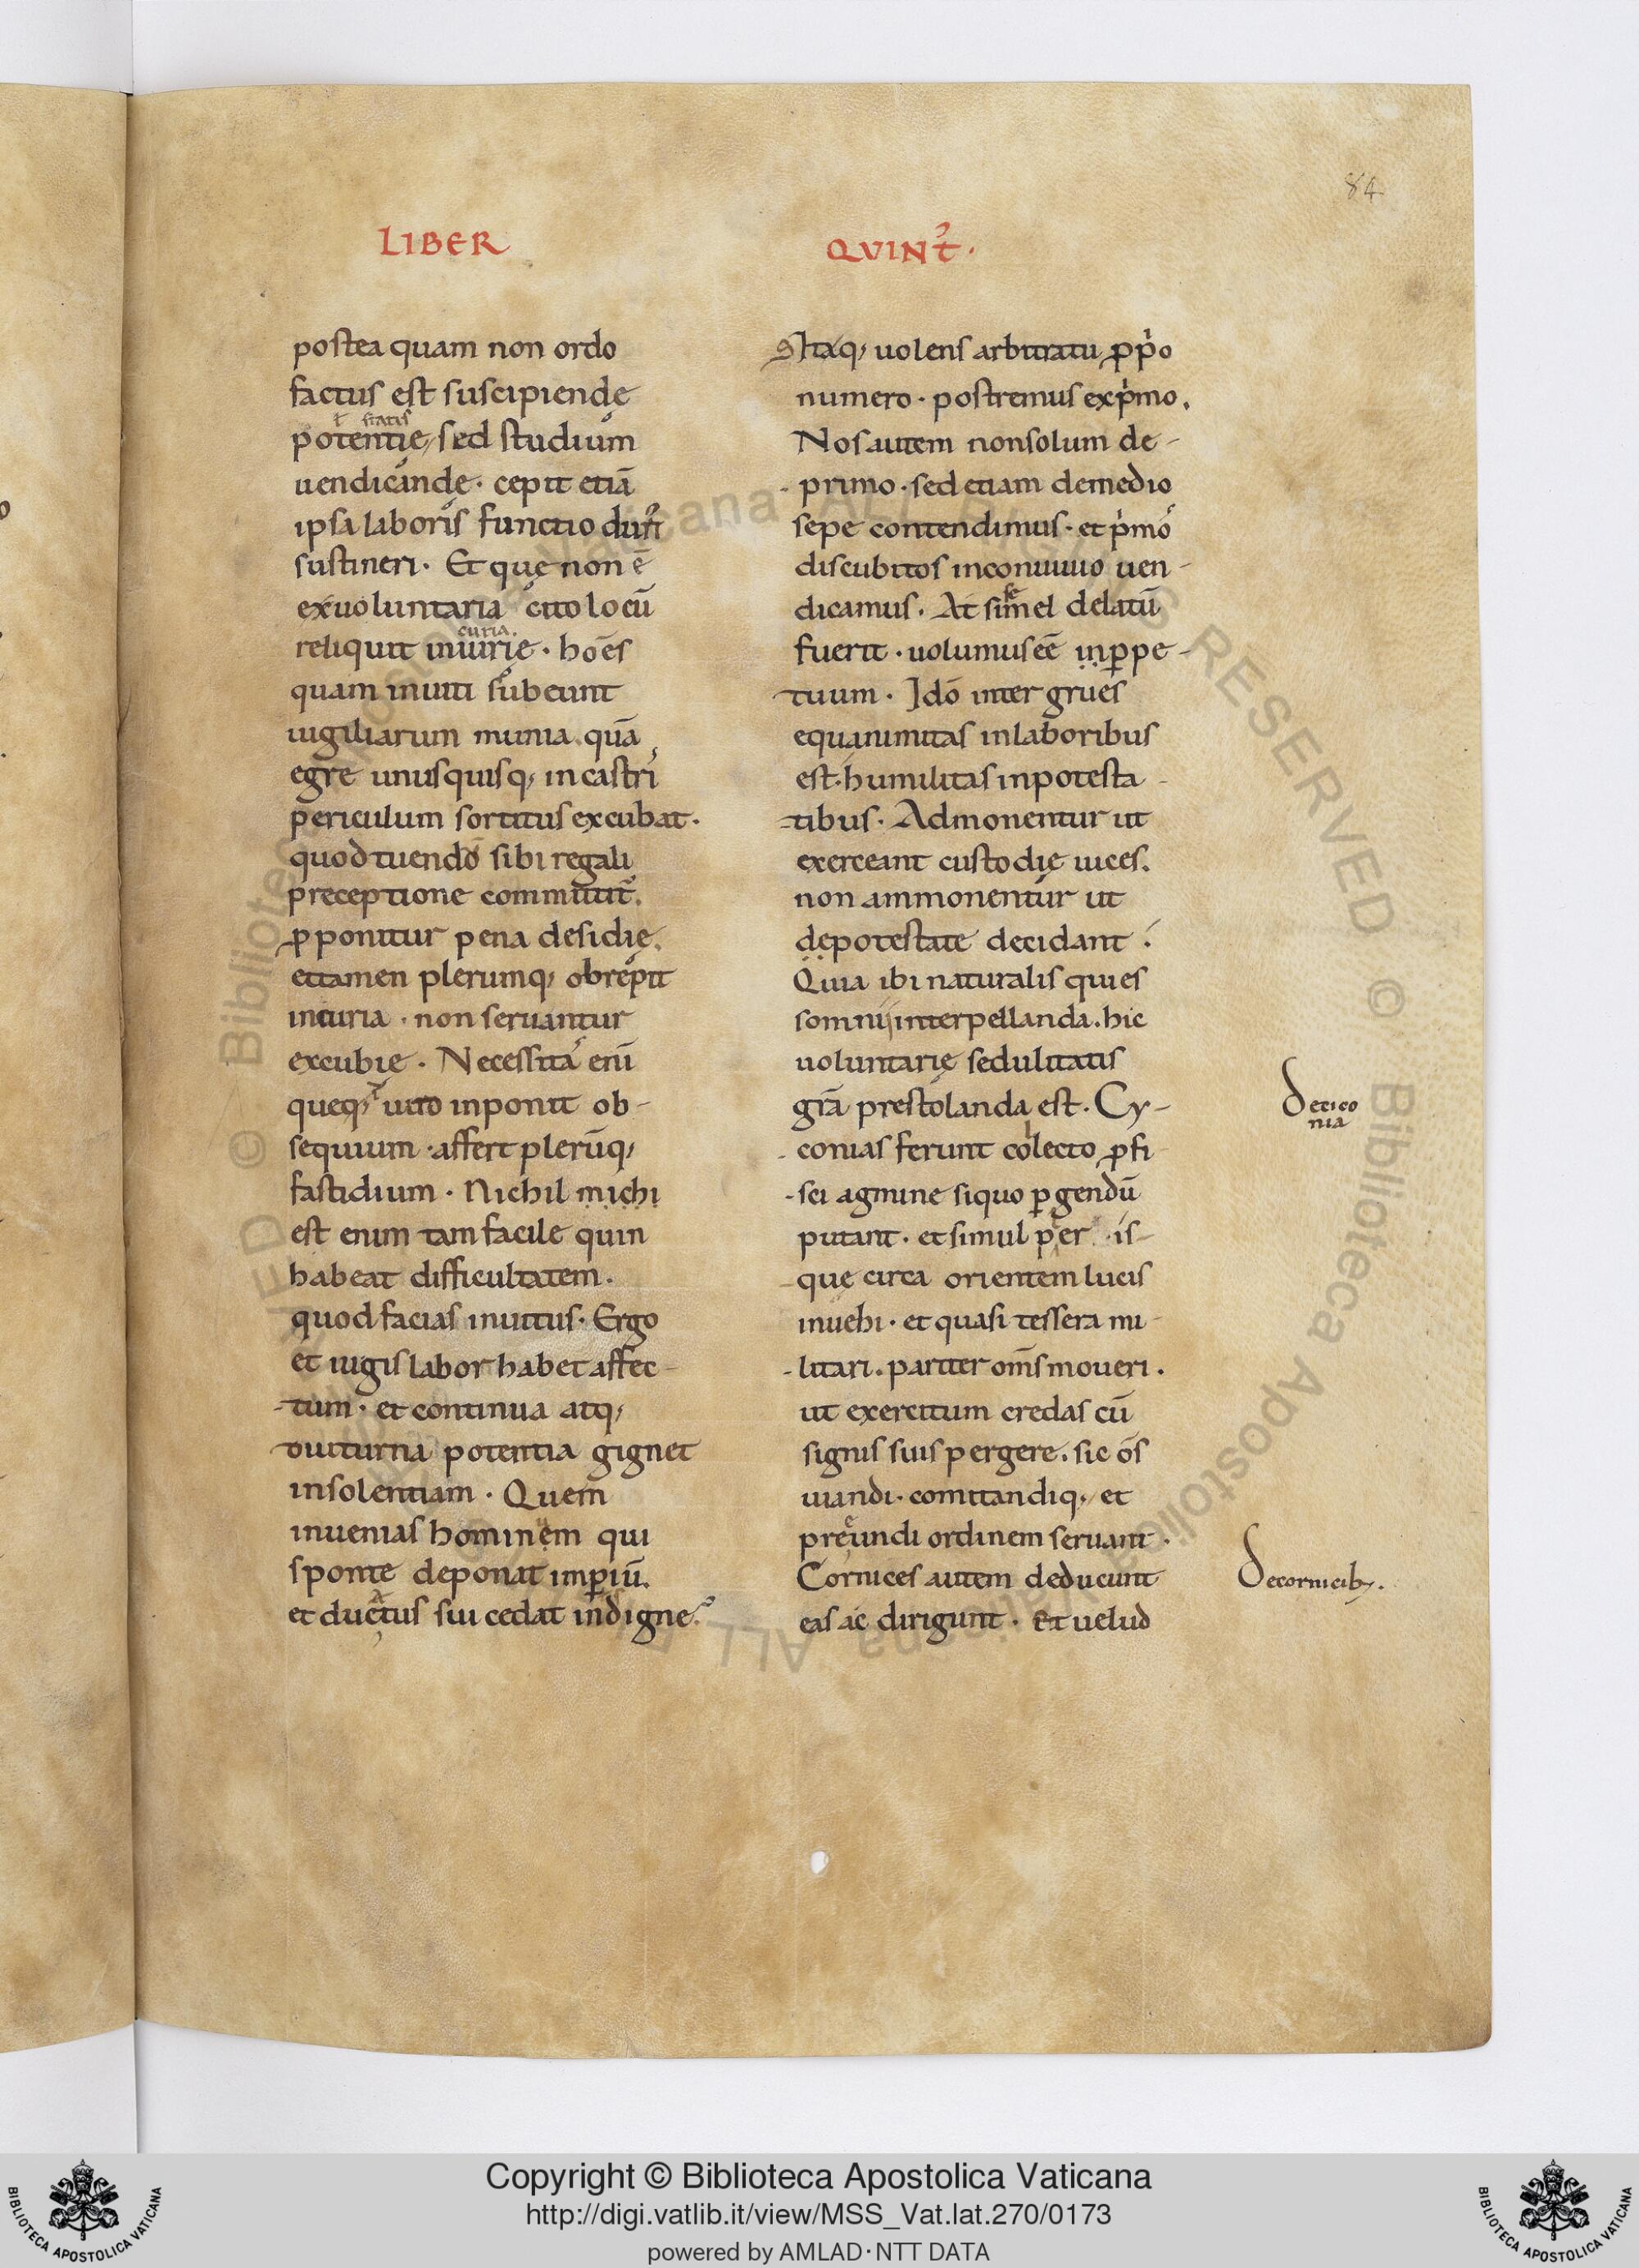 84
LIBER
postea quam non ordo
factus est suscipiende
ł statis
potentie, sed studium
uendicande. cepit etiā
ipsa laboris functio
sustineri. Et quę non ē
ex uoluntaria cito locū
curia.
reliquit iniurie. hoēs
quam inuiti subeunt
uigiliarum munia. quā
egre unusquisq; in castri
periculum sortitus excubat.
quod tuendo sibi regali
preceptione committit.
ꝓponitur pena desidię.
et tamen plerumq; obrepit
incuria. non seruantur
excubię. Necessita eni
queq; inponit ob-
sequium. affert plerūq;
fastidium. Nichil michi
est enim tam facile quin
habeat difficultatem.
quod facias inuitus. Ergo
et iugis labor habet affec-
-tum. et continua atq;
diuturna potentia gignet
insolentiam. Quem
inuenias hominem qui
sponte deponat imꝑiū.
et ductus sui cedat indigne.
QVINT.
Itaq; uolens arbitratu ꝓpo
numero. postremus ex pmo.
Nos autem non solum de-
-primo. sed etiam de medio
sepe contendimus. et pmo
discubitos in conuiuio uen-
se
dicamus. At simel delatū
fuerit. uolumus eē in ꝑpe-
tuum. Idō inter grues
equanimitas in laboribus
est. humilitas in potesta-
-tibus. Admonentur ut
exerceant custodię uices.
non ammonentur ut
de potestate decidant.
Quia ibi naturalis quies
somnii interpellanda. hic
uoluntarię sedulitatis
grā prestolanda est. Cy-
-conias ferunt colecto ꝓfi-
-sci agmine siquo ꝑgendū
putant. et simul per is-
-que circa orientem lucis
inuehi. et quasi tessera mi-
-litari. pariter om̄s moueri.
ut exercitum credas cū
signis suis pergere. sic ōs
uiandi. comitandiq; et
preeundi ordinem seruant.
Cornices autem deducunt
eas ac dirigunt. Et uelud
De cico
nia
De cornicib;.
Copyright © Biblioteca Apostolica Vaticana
http://digi.vatlib.it/view/MSS_Vat.lat.270/0173
powered by AMLAD·NTT DATA
BIBLIOTECA APOSTOLICA VATICANA
BIBLIOTECA APOSTOLICA VATICANA